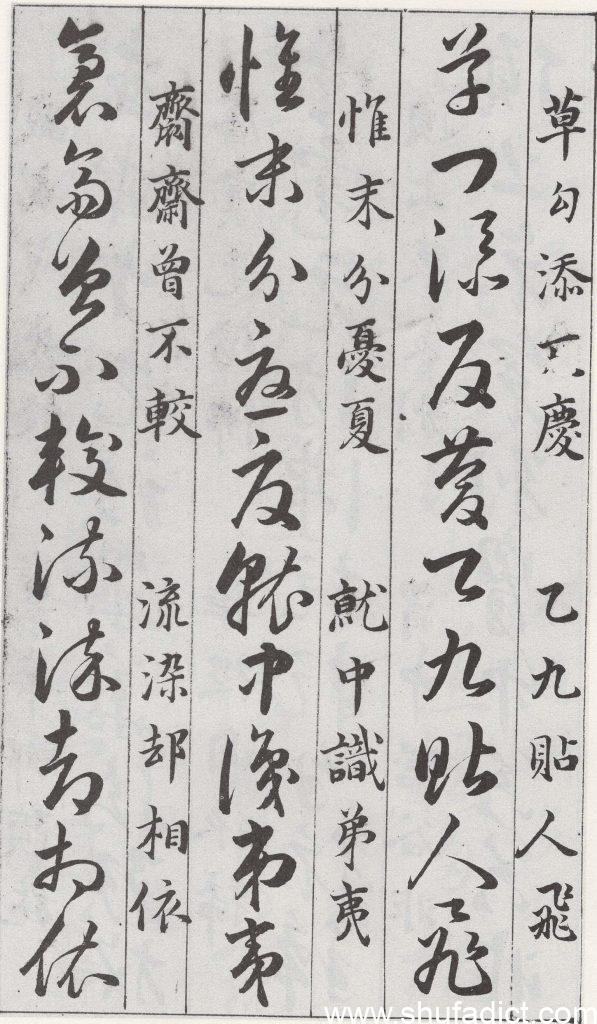 草勾添慶　乙九貼人飛
草勾添反慶乙九貼人飛
惟末分憂夏　就中識弟夷
惟末分憂夏就中識弟夷
齏齋曾不較　流染却相依
齏齋曾不較流染却相依
www.shufadict.com